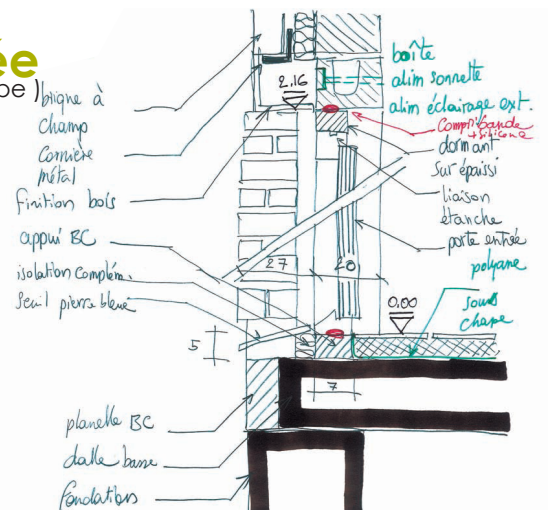 ée
pe )
brique à
champ
Cornière
métal
finition bois
appui BC
isolation complém.
Seuil pierre bleue
5
planelle BC
dalle basse
fondations
2.16
27
20
0.00
7
boîte
alim sonnette
alim éclairage ext.
Compribande
+ silicone
dormant
sur épaissi
liaison
étanche
porte entrée
polyane
sous
chape